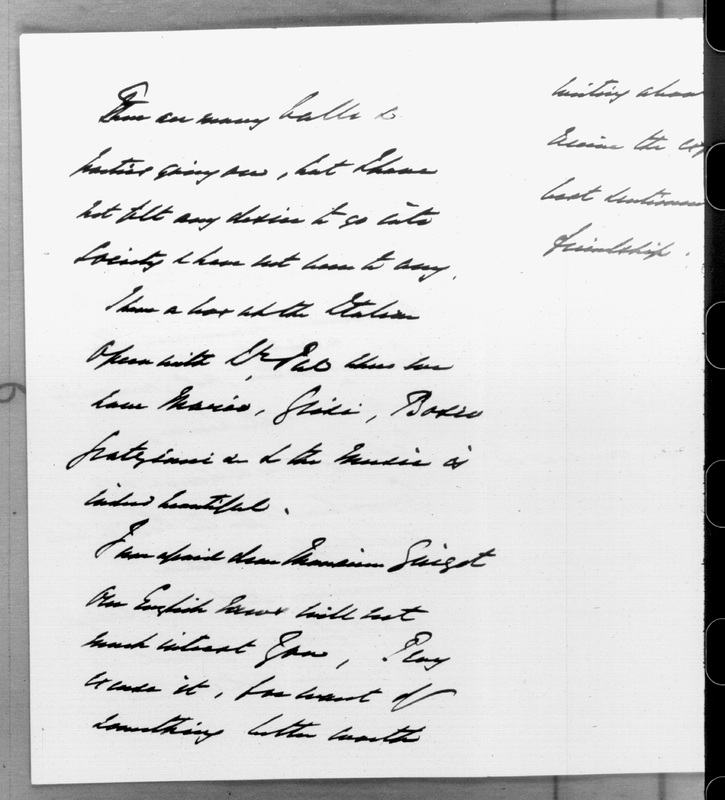 There are many balls &
parties going on, but I have
not felt any desire to go into
Society & have not been to any.
I have a box at the Italian
Opera with where we
have Mario, Grisi, Bosio
Gratziani & & the Music is
indeed beautiful.
I am afraid dear Monsieur Guizot
our English news will not
much interest you, Pray
excuse it, for want of
something better worth
writing about
receive the
best sentiments
friendship.